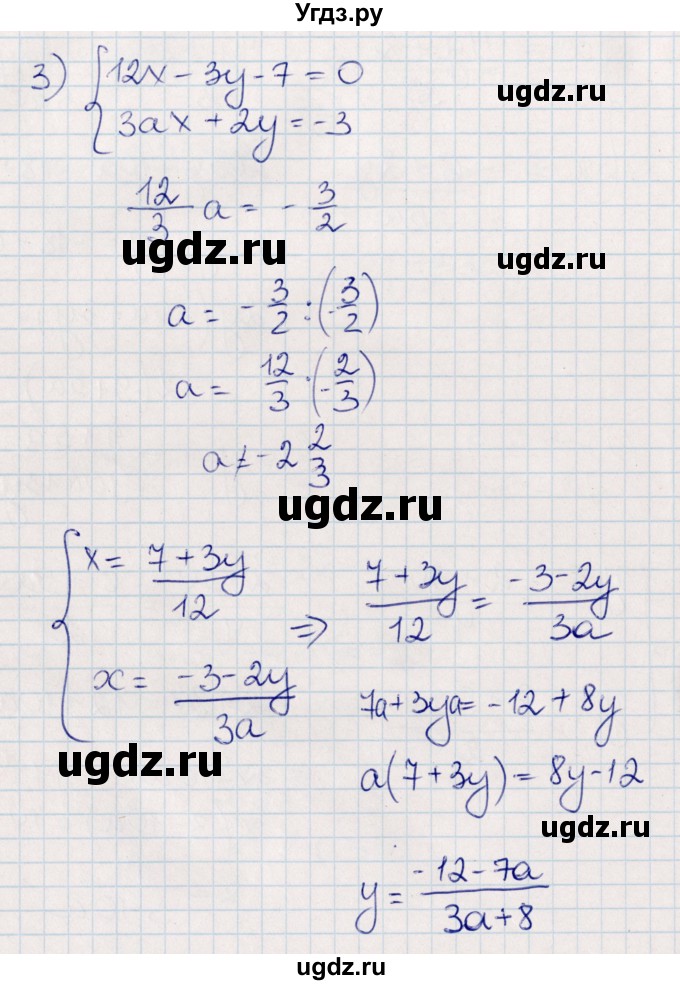 Угдз.ру
3) { 12x - 3y - 7 = 0
3ax + 2y = -3
ugdz.ru
12/3 a = - 3/2
ugdz.ru
ugdz.ru
a = - 3/2 : (-3/2)
a = 12/3 : (-2/3)
a ≠ -2 2/3
ugdz.ru
{ x = (7 + 3y)/12
x = (-3 - 2y)/3a
⇒ (7 + 3y)/12 = (-3 - 2y)/3a
7a + 3ya = -12 + 8y
ugdz.ru
a(7 + 3y) = 8y - 12
ugdz.ru
y = (-12 - 7a)/(3a + 8)
ugdz.ru